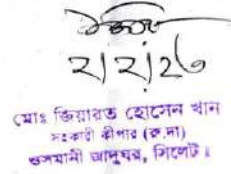 ২।২।২৬
মোঃ জিয়ারত হোসেন খান
সহকারী কীপার (রু.দা)
ওসমানী জাদুঘর, সিলেট।